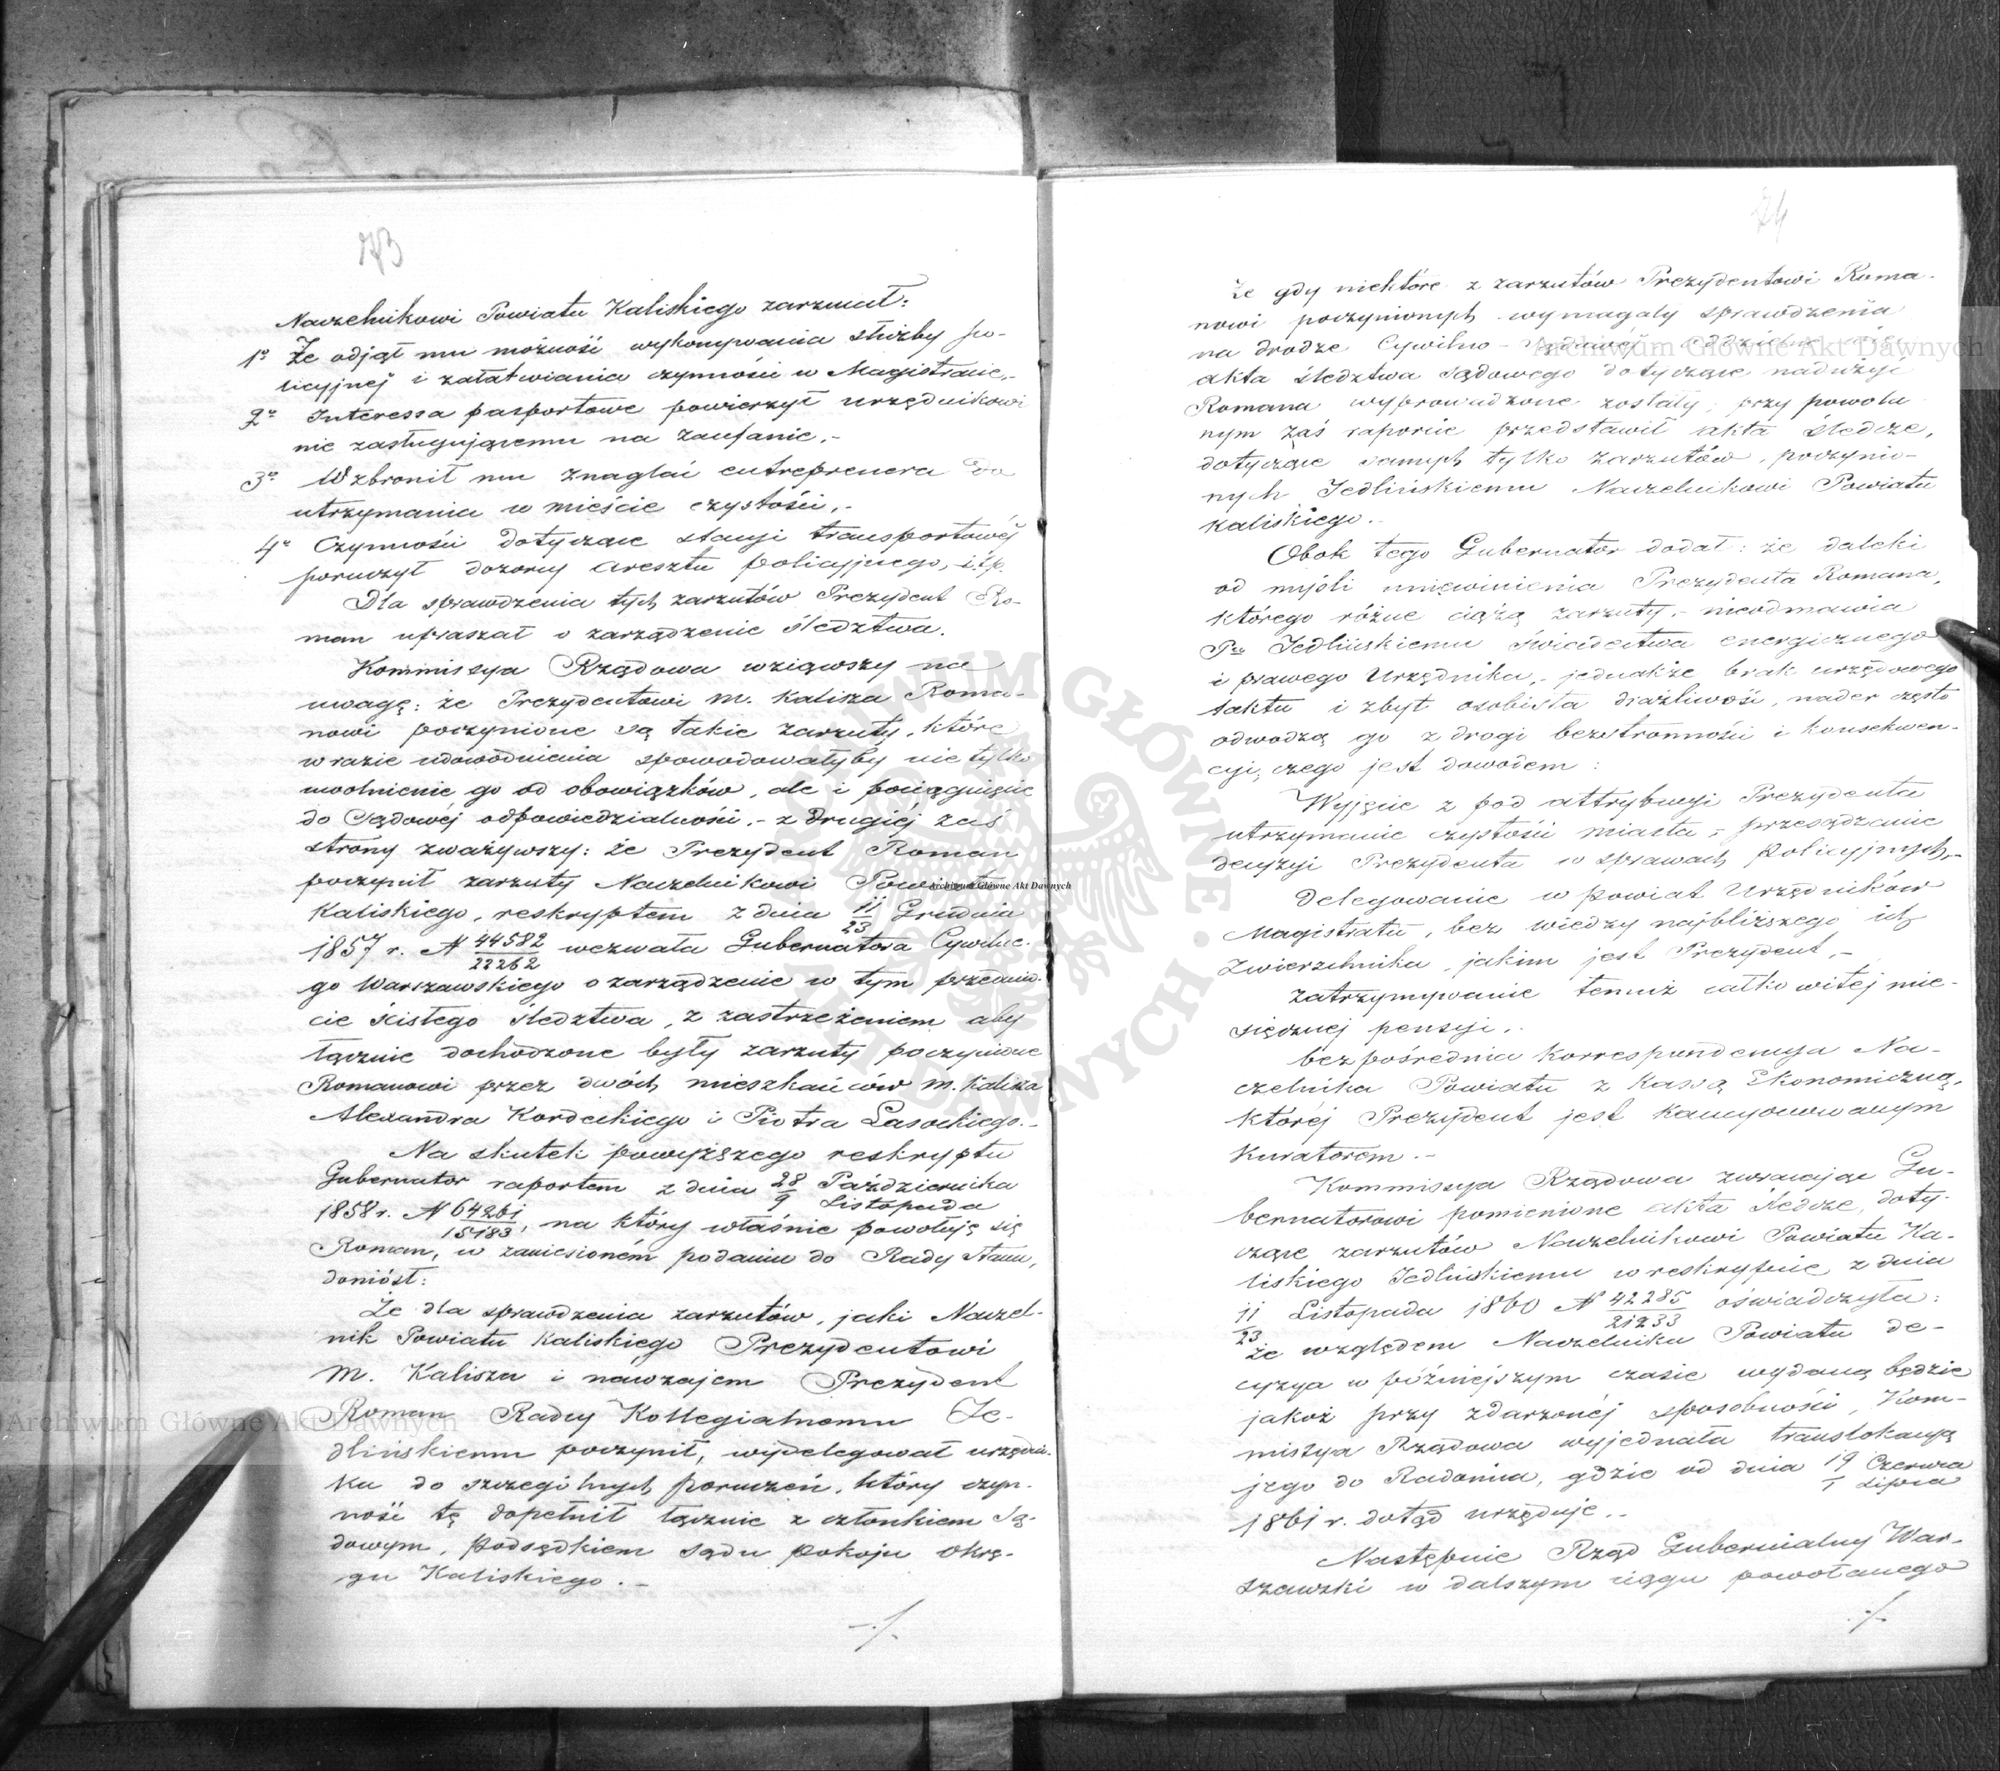 73
Naczelnikowi Powiatu Kaliskiego zarzucał:
1o Że odjął mu możność wykonywania służby po-
licyjnej i załatwiania czynności w Magistracie,-
2o Interessa paszportowe powierzył urzędnikowi
nie zasługującemu na zaufanie,-
3o Wzbronił mu znaglać entreprenera do
utrzymania w mieście czystości,-
4o Czynności dotyczące stacyi transportowéj
poruczył dozorcy aresztu policyjnego, i t.p.
Dla sprawdzenia tych zarzutów Prezydent Ro-
man upraszał o zarządzenie śledztwa.
Kommissya Rządowa wziąwszy na
uwagę: że Prezydentowi m. Kalisza Roma-
nowi poczynione są takie zarzuty, które
w razie udowodnienia spowodowałyby nie tylko
uwolnienie go od obowiązków, ale i pociągnięcie
do sądowéj odpowiedzialności,- z drugiéj zaś
strony zważywszy: że Prezydent Roman
poczynił zarzuty Naczelnikowi Powiatu
Kaliskiego, reskryptem z dnia 11/23 Grudnia
1857 r. N 44582/22262 wezwała Gubernatora Cywilne-
go Warszawskiego o zarządzenie w tym przedmio-
cie ścisłego śledztwa, z zastrzeżeniem aby
łącznie dochodzone były zarzuty poczynione
Romanowi przez dwóch mieszkańców m. Kalisza
Alexandra Kordeckiego i Piotra Lasockiego.-
Na skutek powyższego reskryptu
Gubernator raportem z dnia 28/9 Października/Listopada
1858 r. N 64261/15183, na który właśnie powołuje się
Roman, w zaniesioném podaniu do Rady Stanu,
doniósł:
Że dla sprawdzenia zarzutów, jaki Naczel-
nik Powiatu Kaliskiego Prezydentowi
M. Kalisza i nawzajem Prezydent
Roman Radcy Kollegialnemu Je-
dlińskiemu poczynił, wydelegował urzędni-
ka do szczególnych poruczeń, który czyn-
ność tę dopełnił łącznie z członkiem Są-
dowym, Podsędkiem Sądu Pokoju Okrę-
gu Kaliskiego.-
-/-
74
że gdy niektóre z zarzutów Prezydentowi Roma-
nowi poczynionych wymagały sprawdzenia
na drodze Cywilno-Sądowéj oddzielne
akta śledztwa sądowego dotyczące nadużyć
Romana wyprowadzone zostały, przy powoła-
nym zaś raporcie przedstawił akta śledcze,
dotyczące samych tylko zarzutów, poczynio-
nych Jedlińskiemu Naczelnikowi Powiatu
Kaliskiego.-
Obok tego Gubernator dodał: że daleki
od myśli uniewinienia Prezydenta Romana,
którego różne ciążą zarzuty,- nieodmawia
Pu Jedlińskiemu świadectwa energicznego
i prawego Urzędnika,- jednakże brak urzędowego
taktu i zbyt osobista drażliwość, nader często
odwodzą go z drogi bezstronności i konsekwen-
cyi, czego jest dowodem:
Wyjęcie z pod attrybucyi Prezydenta
utrzymanie czystości miasta, przesądzanie
decyzyi Prezydenta w sprawach policyjnych,-
Delegowanie w powiat Urzędników
Magistratu, bez wiedzy najbliższego ich
Zwierzchnika, jakim jest Prezydent,-
Zatrzymywanie temuż całkowitéj mie-
sięcznej pensyi,-
bezpośrednia korrespondencya Na-
czelnika Powiatu z Kassą Ekonomiczną,
któréj Prezydent jest kaucyonowanym
Kuratorem.-
Kommissya Rządowa zwracając Gu-
bernatorowi pomienione akta śledcze, doty-
czące zarzutów Naczelnikowi Powiatu Ka-
liskiego Jedlińskiemu w reskrypcie z dnia
11/23 Listopada 1860 N 42285/21233 oświadczyła:
że względem Naczelnika Powiatu de-
cyzya w późniejszym czasie wydaną będzie
jakoż przy zdarzonéj sposobności, Kom-
missya Rządowa wyjednała translokacyą
jego do Radomia, gdzie od dnia 19/1 Czerwca/Lipca
1861 r. dotąd urzęduje.-
Następnie Rząd Gubernialny War-
szawski w dalszym ciągu powołanego
-/-
Archiwum Główne Akt Dawnych
Archiwum Główne Akt Dawnych
Archiwum Główne Akt Dawnych
ARCHIWUM GŁÓWNE AKT DAWNYCH